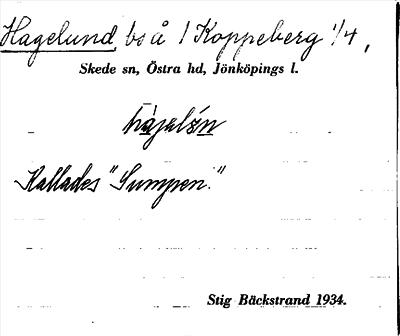 Hagelund, bs å / Koppeberg 1/4,
Skede sn, Östra hd, Jönköpings l.
Kallades "Sumpen."
Stig Bäckstrand 1934.